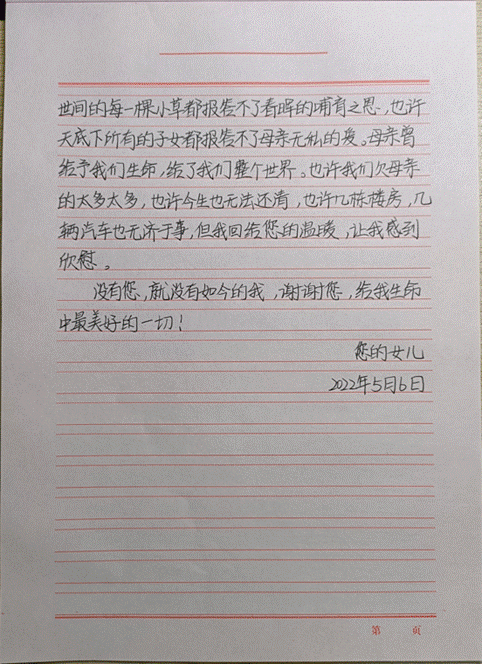 世间的每一棵小草都报答不了春晖的哺育之恩，也许
天底下所有的子女都报答不了母亲无私的爱。母亲曾
给予我们生命，给了我们整个世界。也许我们欠母亲
的太多太多，也许今生也无法还清，也许几栋楼房，几
辆汽车也无济于事，但我回给您的温暖，让我感到
欣慰。
没有您，就没有如今的我，谢谢您，给我生命
中最美好的一切！
您的女儿
2022年5月6日
第 页